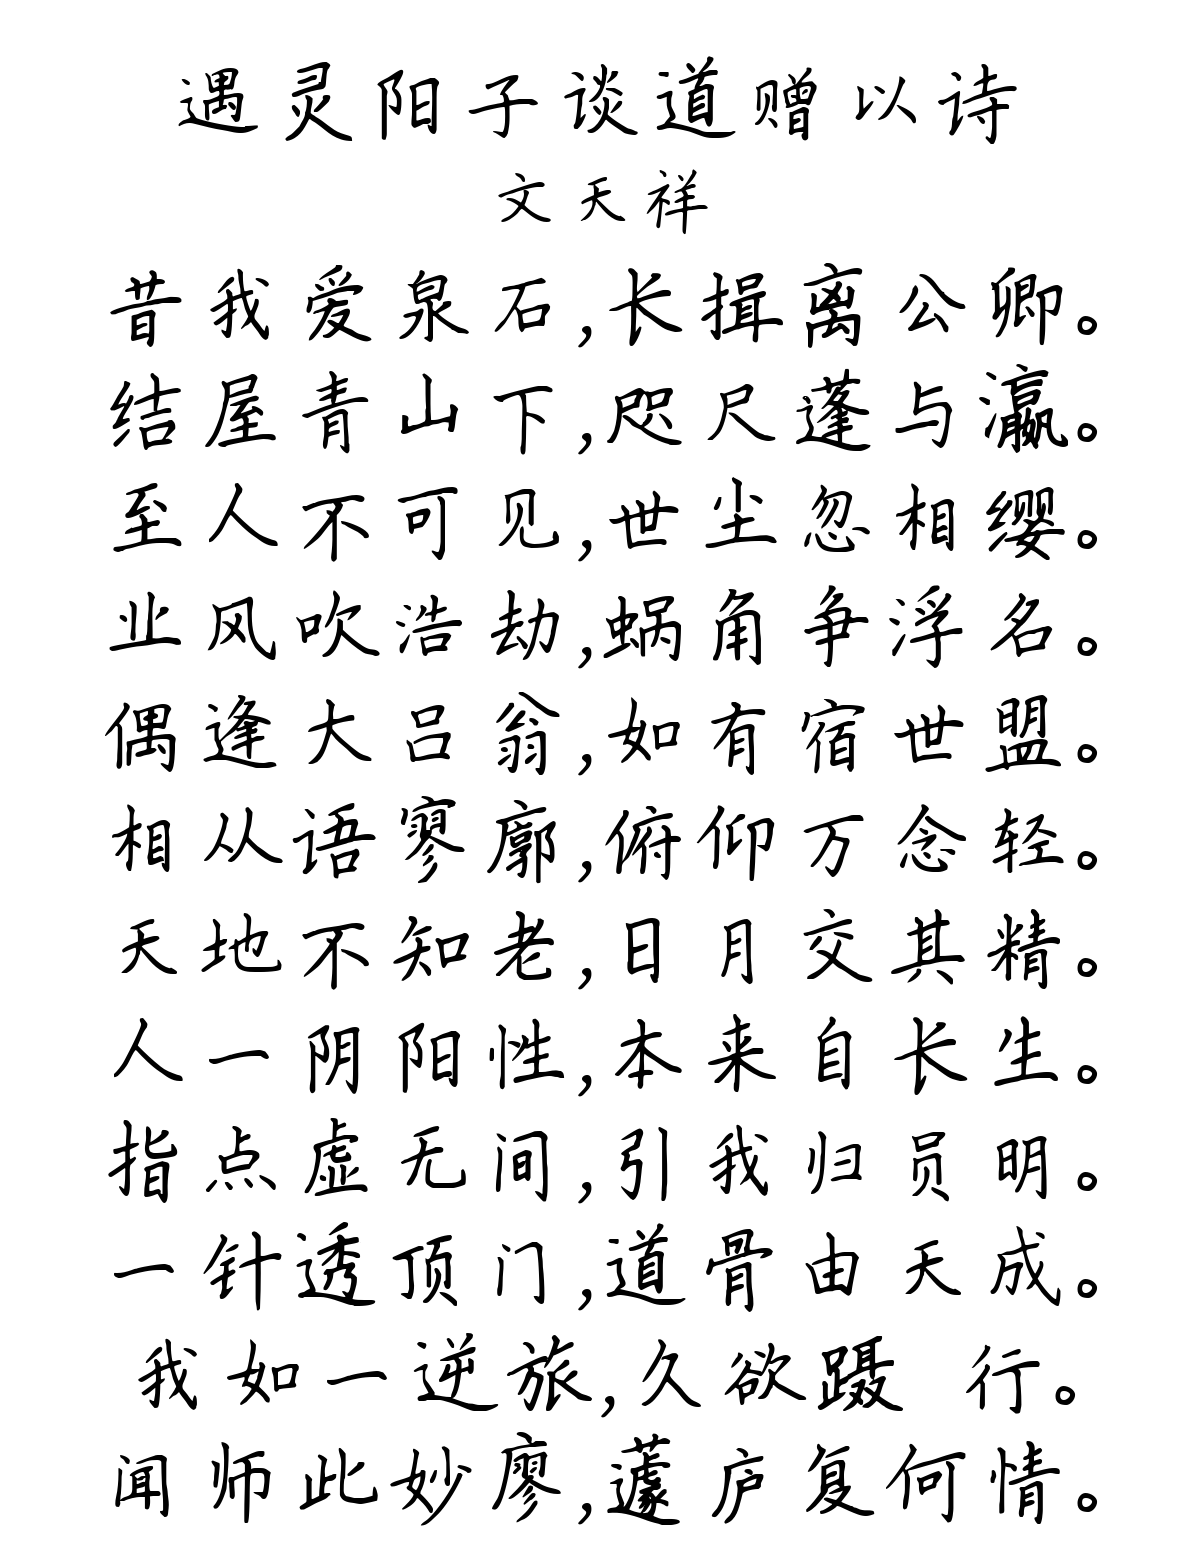 遇灵阳子谈道赠以诗
文天祥
昔我爱泉石,长揖离公卿。
结屋青山下,咫尺蓬与瀛。
至人不可见,世尘忽相缨。
业风吹浩劫,蜗角争浮名。
偶逢大吕翁,如有宿世盟。
相从语寥廓,俯仰万念轻。
天地不知老,日月交其精。
人一阴阳性,本来自长生。
指点虚无间,引我归员明。
一针透顶门,道骨由天成。
我如一逆旅,久欲蹑 行。
闻师此妙廖,蘧庐复何情。